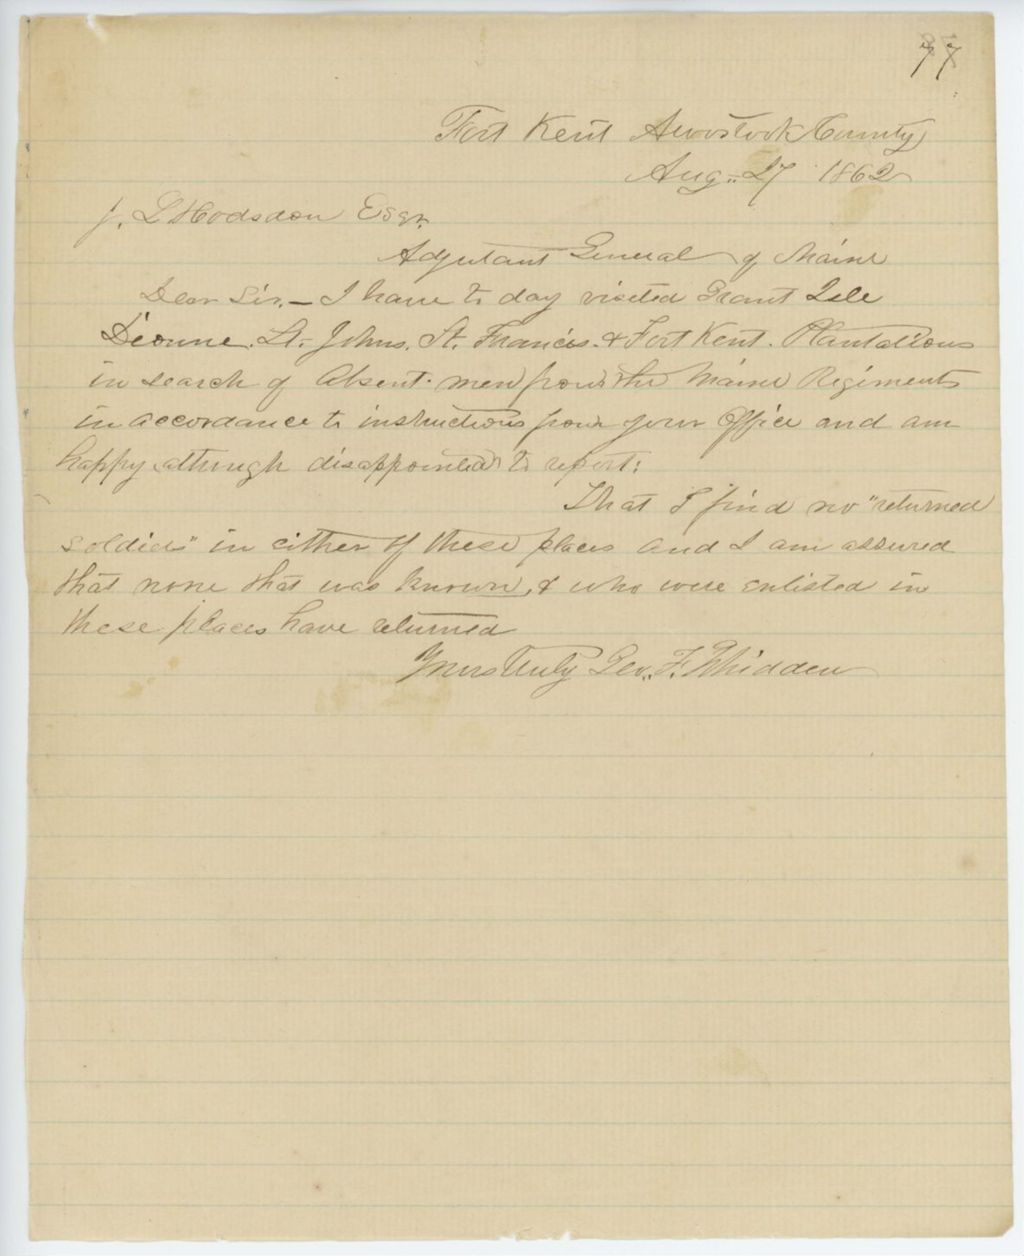 77
Fort Kent Aroostook County
Aug. 27 1862
J. L Hodsdon Esqr.
Adjutant General of Maine
Dear Sir. — I have to day visited Grant Isle
Dionne. St. Johns. St. Francis. & Fort Kent. Plantations
in search of Absent men from the Maine Regiments
in accordance to instructions from your Office and am
happy, although disappointed to report:
That I find no "returned
soldiers" in either of these places and I am assured
that none that was known, & who were enlisted in
these places have returned
Yours truly Geo. F. Whidden